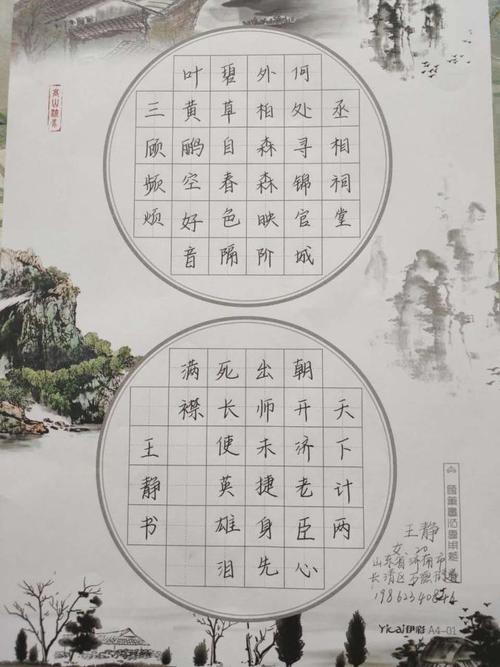 丞相祠堂
何处寻锦官城
外柏森森映阶
碧草自春色隔
叶黄鹂空好音
三顾频烦
天下计两
朝开济老臣心
出师未捷身先
死长使英雄泪
满襟
王静书
王静
女 20
山东省济南市
长清区万德街道
Yicai伊彩 A4-01